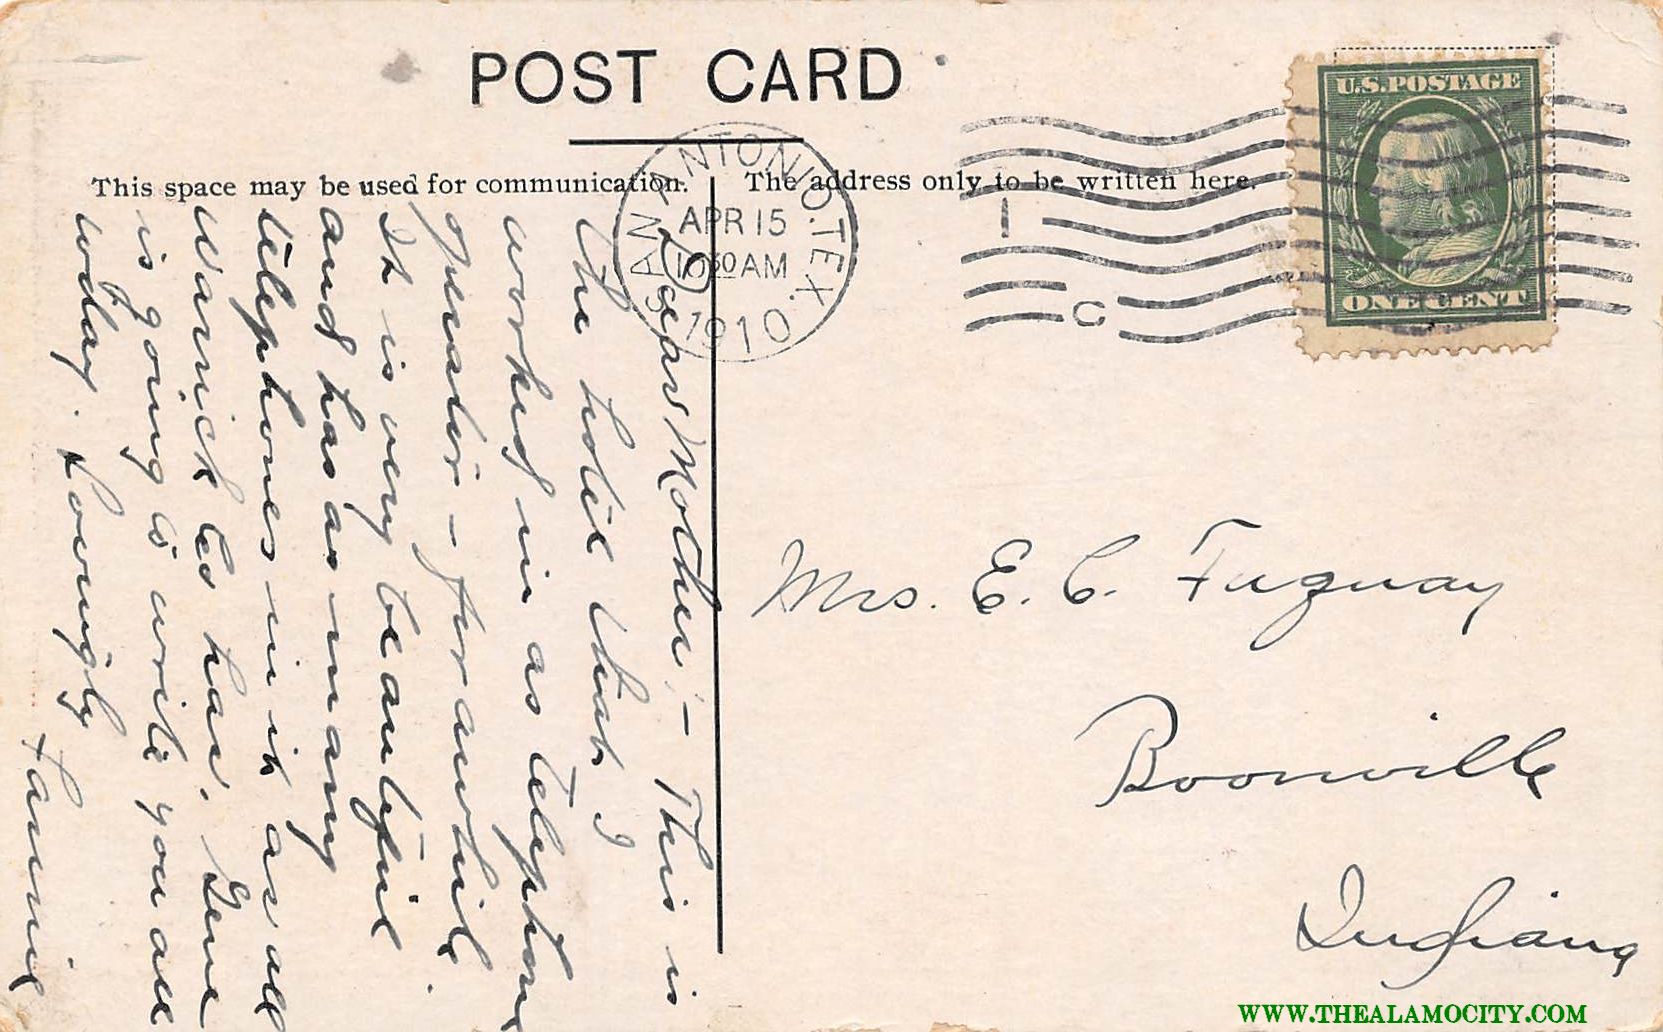 POST CARD
This space may be used for communication.
The address only to be written here.
SAN ANTONIO. TEX.
APR 15
10 30 AM
1910
1
C
U.S. POSTAGE
ONE CENT
Dear Mother:- This is
the hotel that I
worked in as telephone
operator - for awhile.
It is very beautiful
and has as many
telephones in it as all
Warrick Co has. Gene
is going to write you all
today. Lovingly
Fannie
Mrs. E. C. Fuquay
Boonville
Indiana
WWW.THEALAMOCITY.COM